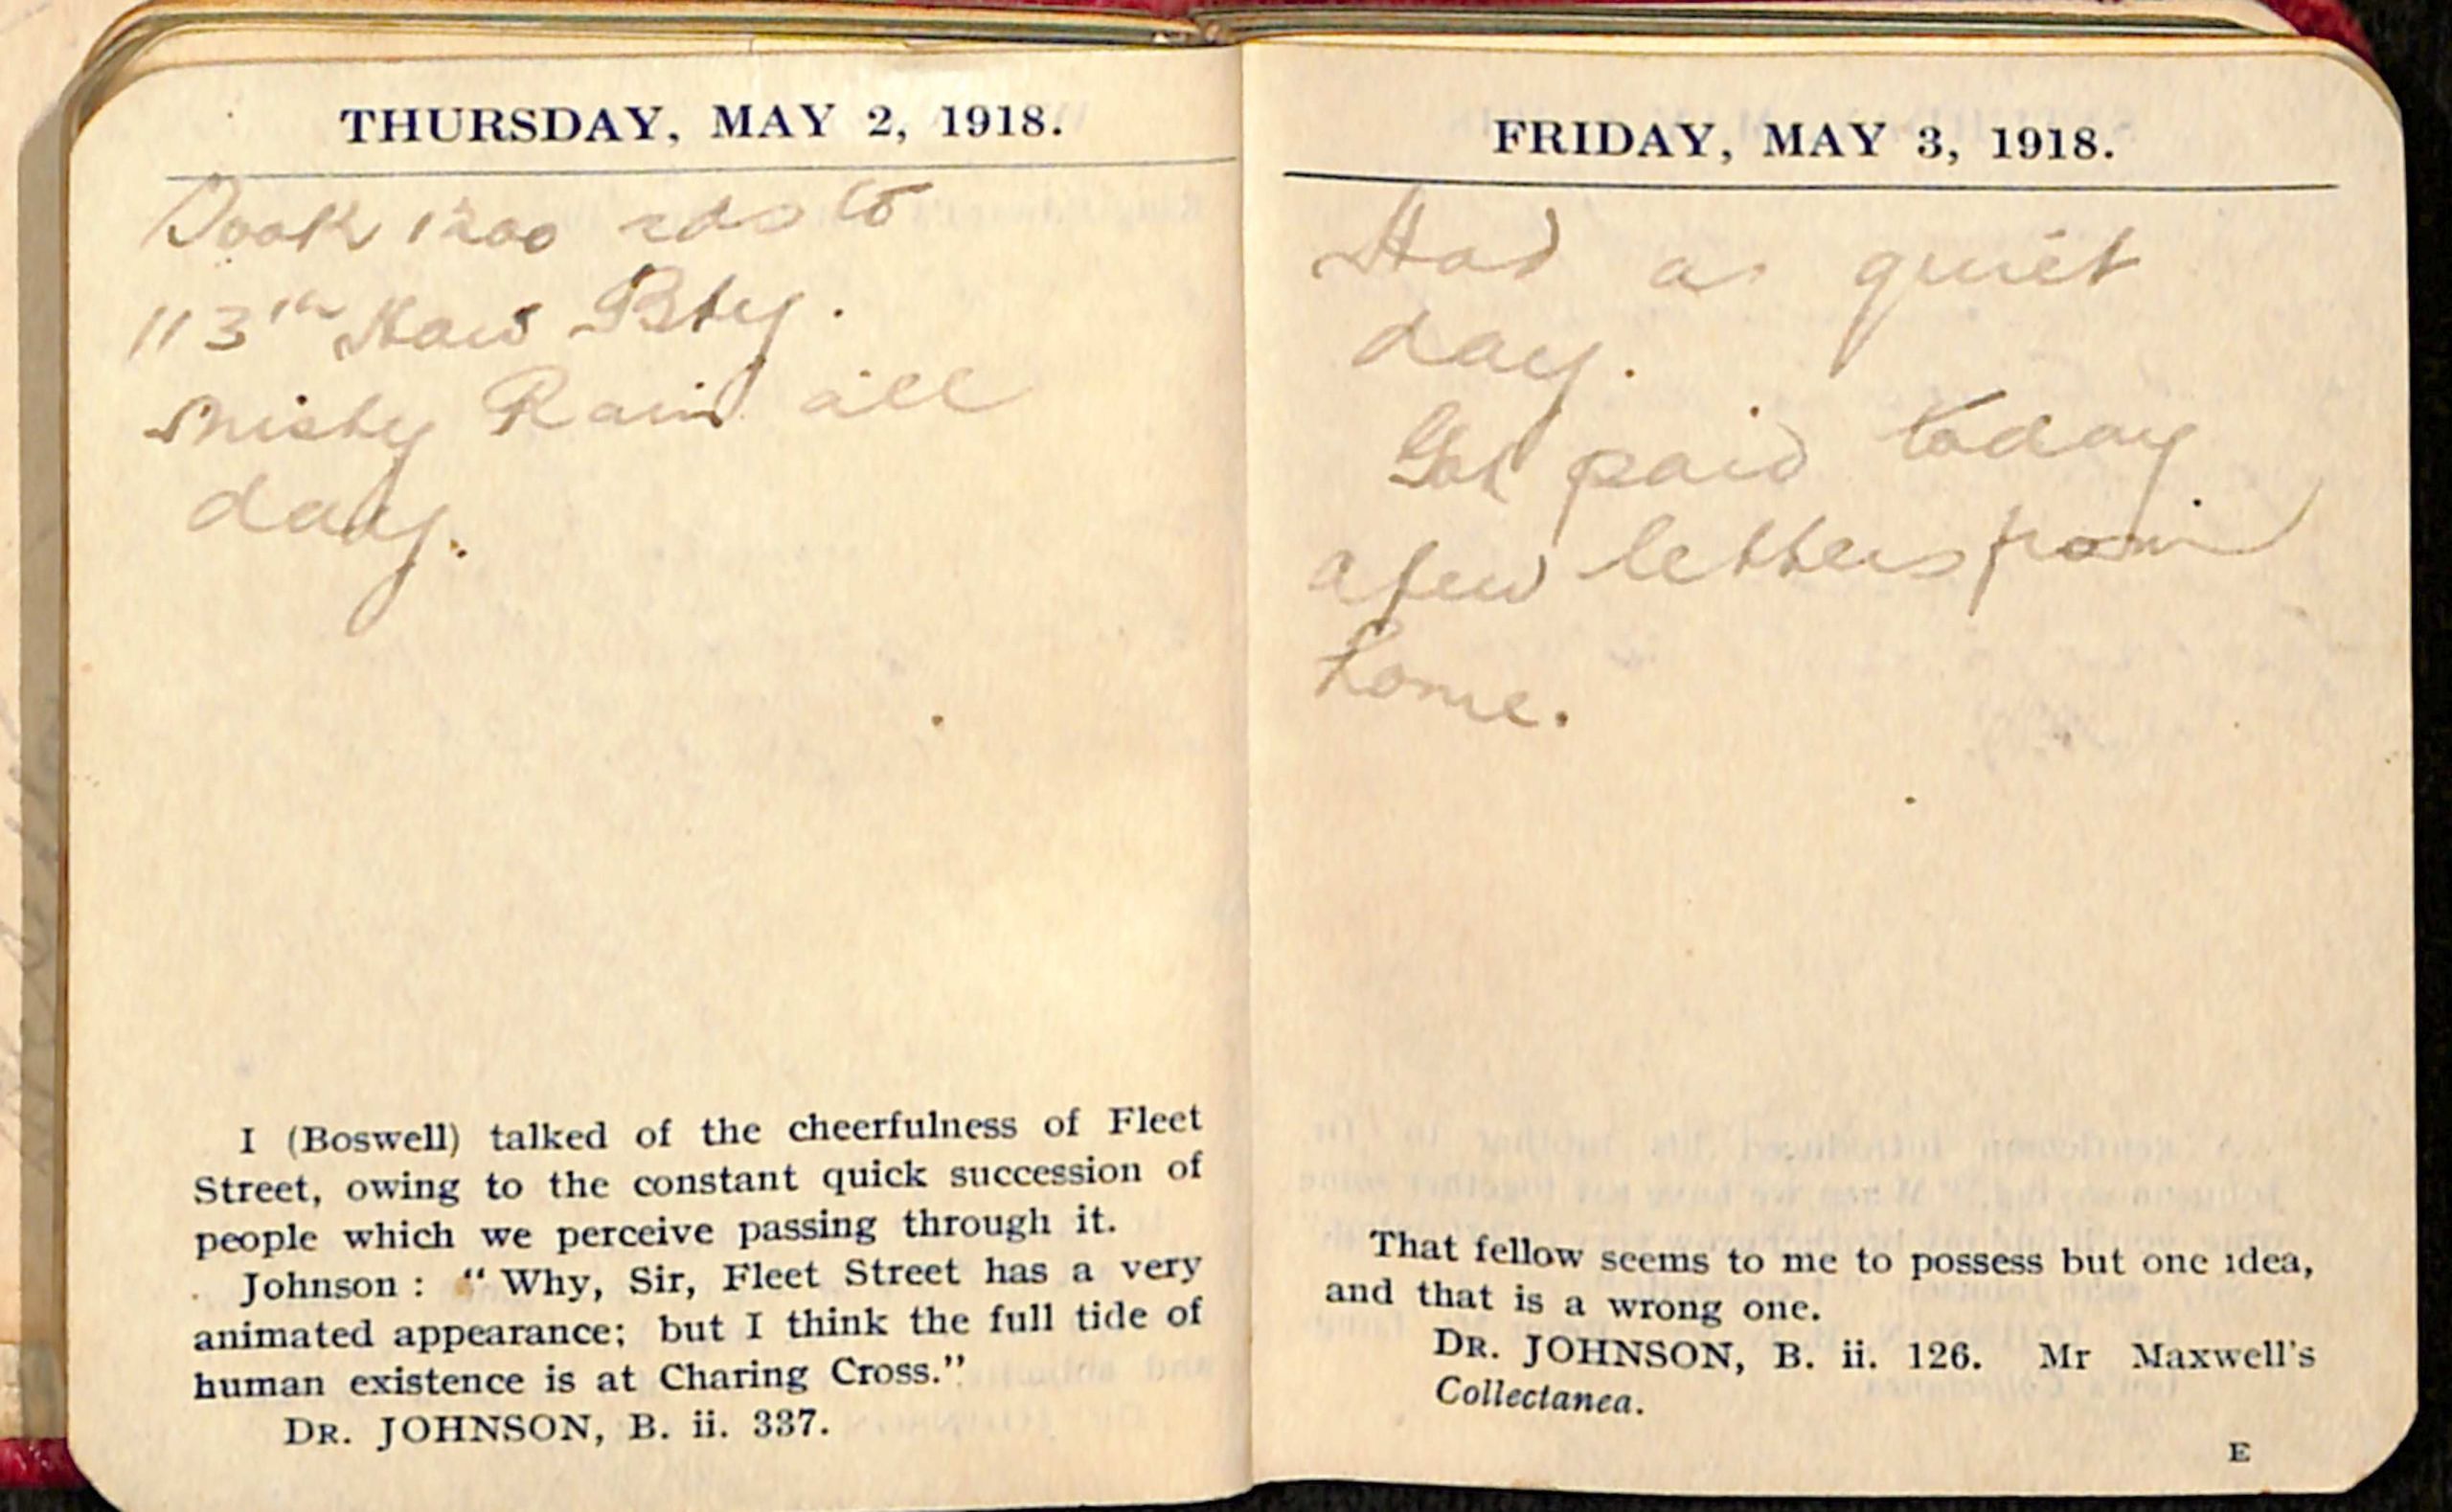 THURSDAY, MAY 2, 1918.
Took 1200 rds to
113th How Bty.
Misty Rain all
day.
I (Boswell) talked of the cheerfulness of Fleet
Street, owing to the constant quick succession of
people which we perceive passing through it.
Johnson : "Why, Sir, Fleet Street has a very
animated appearance; but I think the full tide of
human existence is at Charing Cross."
DR. JOHNSON, B. ii. 337.
FRIDAY, MAY 3, 1918.
Had a quiet
day.
Got paid today
a few letters from
home.
That fellow seems to me to possess but one idea,
and that is a wrong one.
DR. JOHNSON, B. ii. 126. Mr Maxwell's
Collectanea.
E